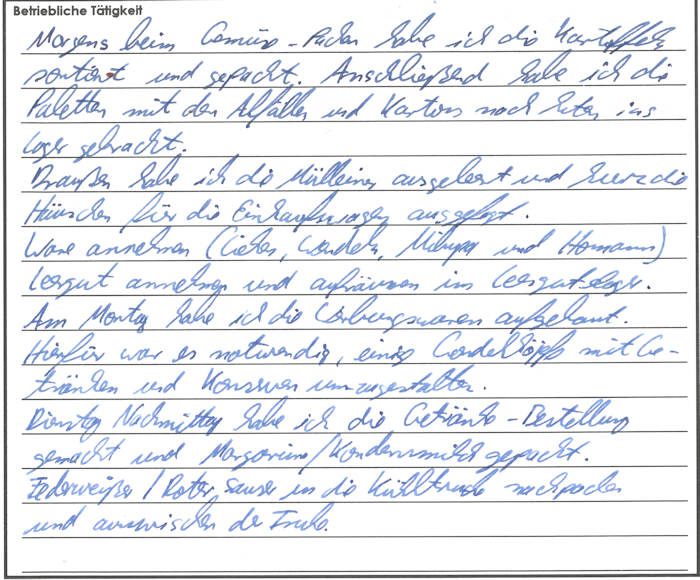 Betriebliche Tätigkeit
Morgens beim Gemüse-Packen habe ich die Kartoffeln
sortiert und gepackt. Anschließend habe ich die
Paletten mit den Abfällen und Kartons nach hinten ins
Lager gebracht.
Draußen habe ich die Mülleimer ausgeleert und kurz die
Häuschen für die Einkaufswagen ausgefegt.
Ware annehmen (Lieken, Wendeln, Milupa und Homann)
Leergut annehmen und aufräumen im Leergutlager.
Am Montag habe ich die Werbungswaren aufgebaut.
Hierfür war es notwendig, einige Gondelköpfe mit Ge-
tränken und Konserven umzugestalten.
Dienstag Nachmittag habe ich die Getränke-Bestellung
gemacht und Margarine/Kondensmilch gepackt.
Federweißer/Roter Sauser in die Kühltruhe nachpacken
und auswischen der Truhe.